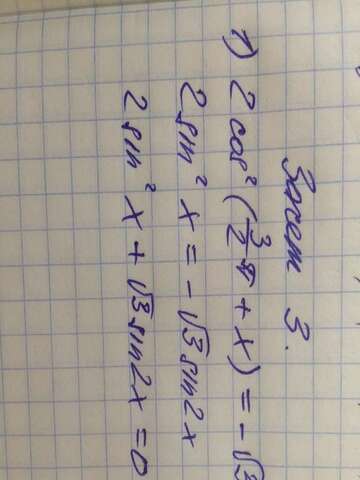 Зачет 3.
1) 2 cos² (3/2 π + x) = - √3
2 sin² x = - √3 sin 2x
2 sin² x + √3 sin 2x = 0